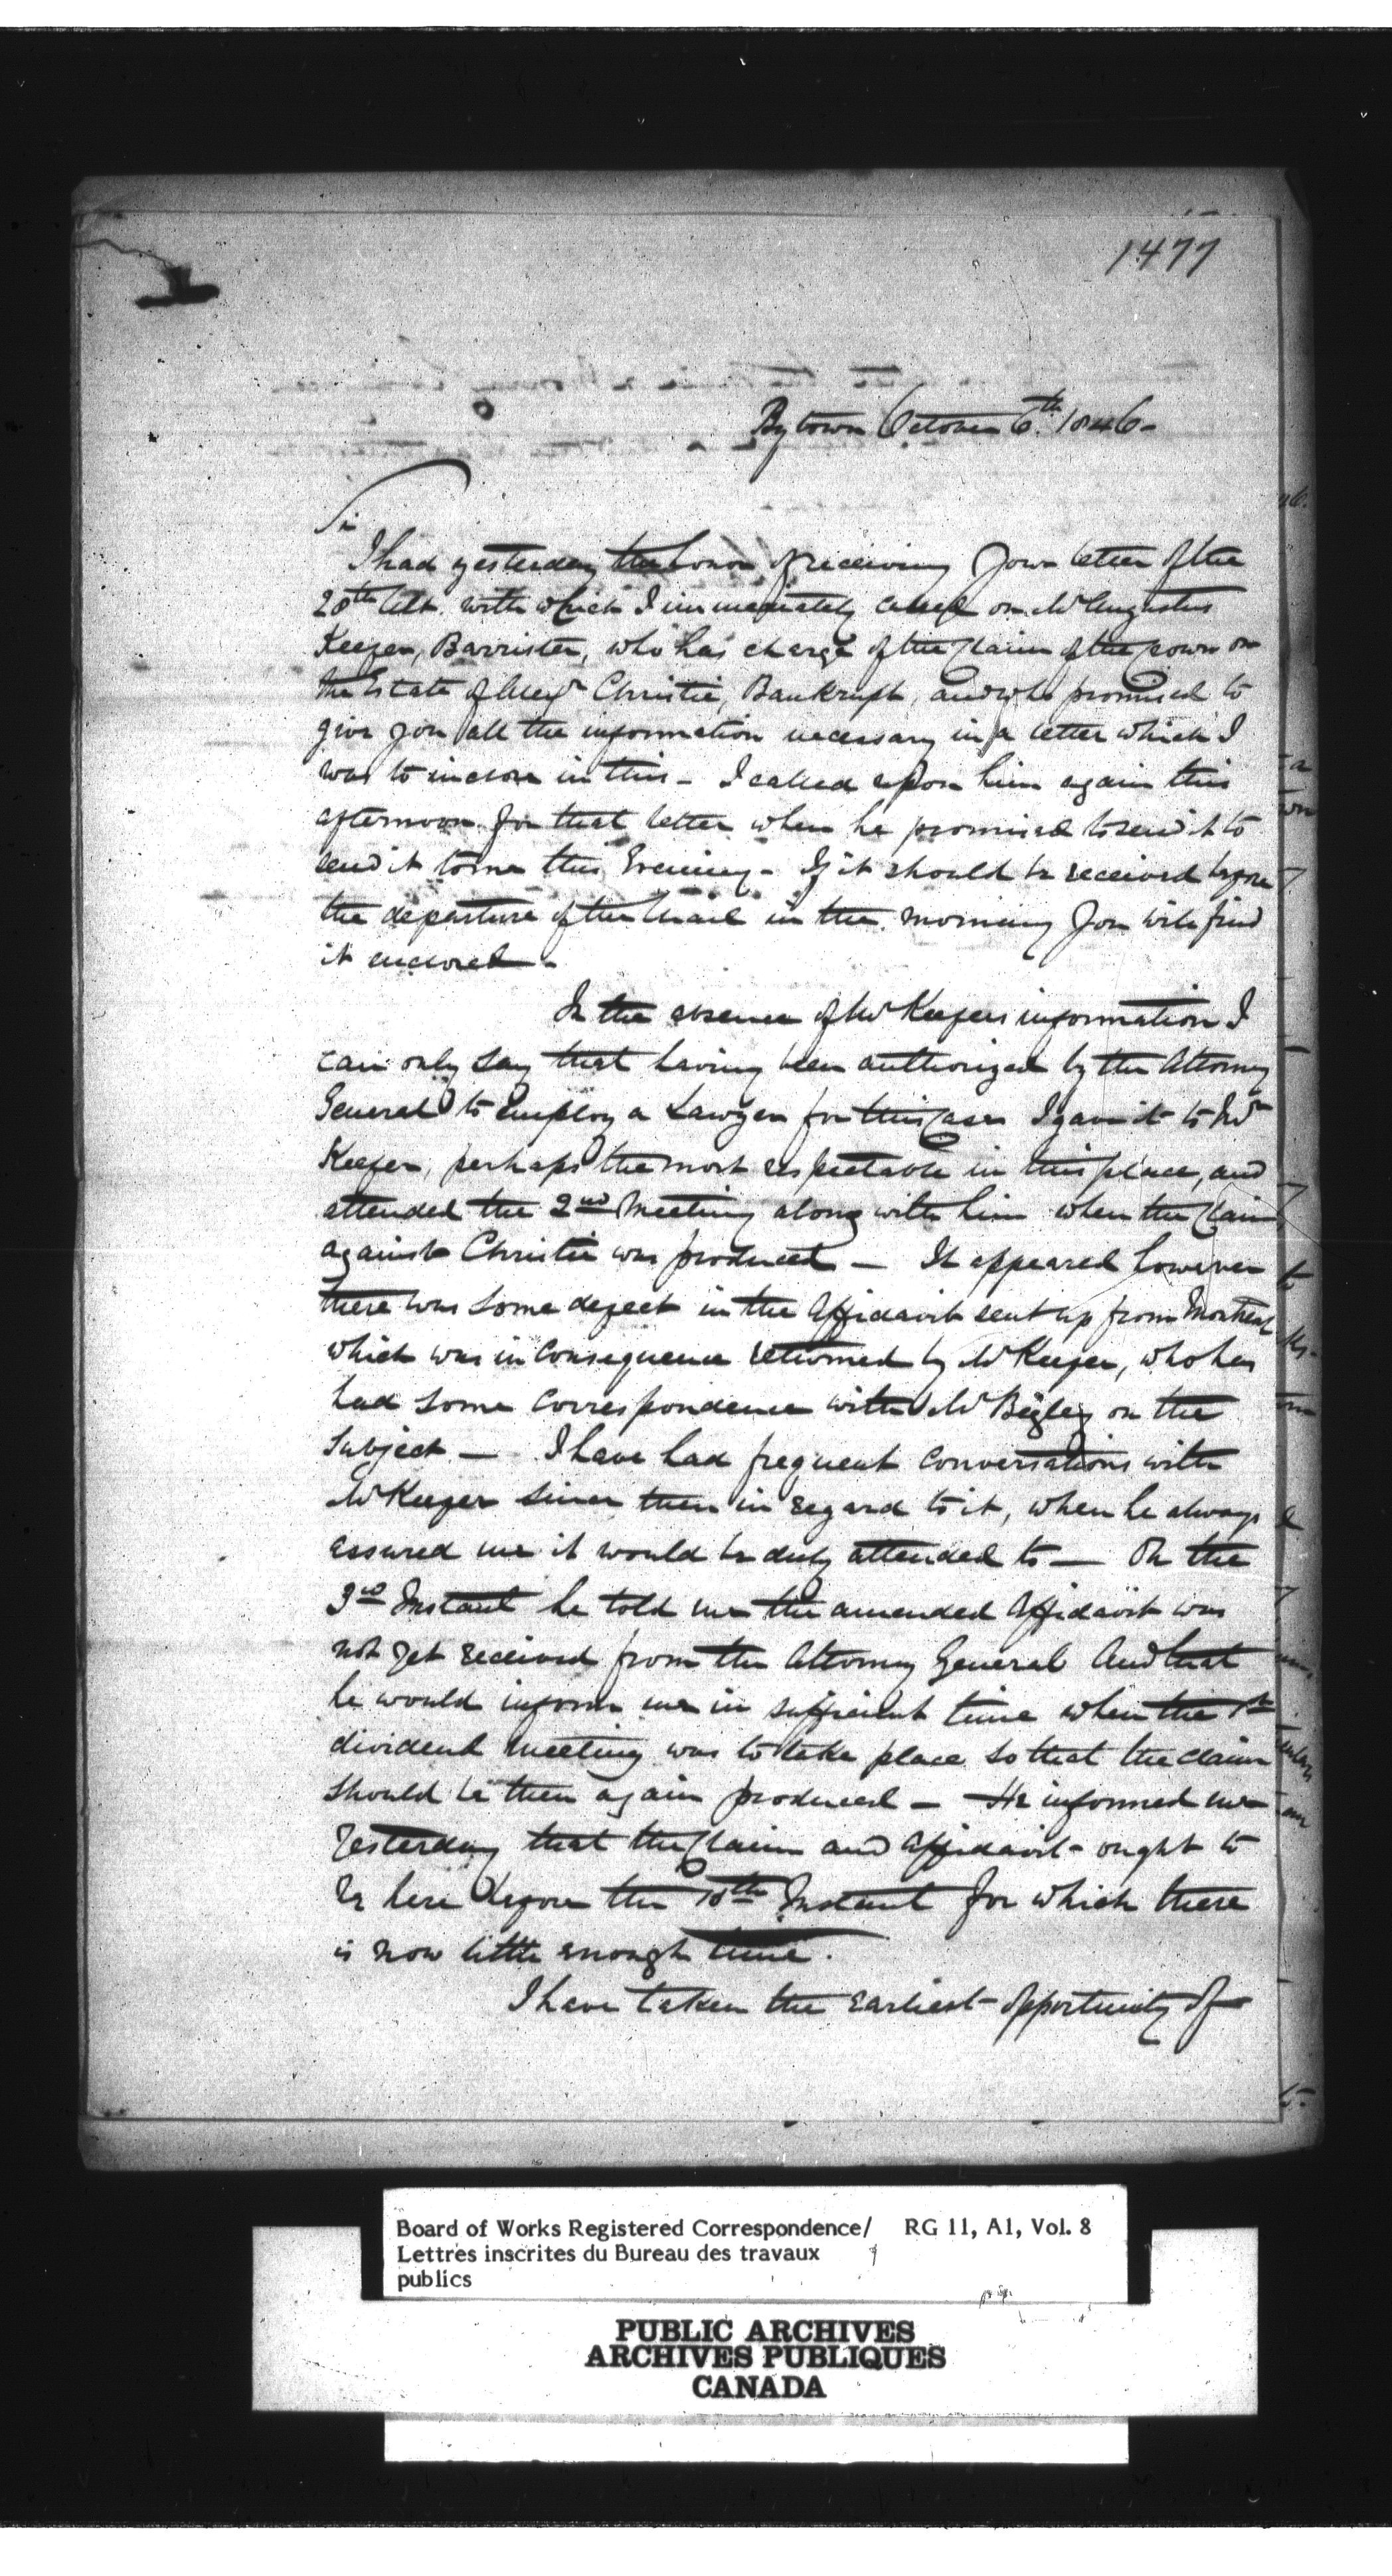 1477
Bytown October 6th 1846-
Sir
I had yesterday the honor of receiving Your letter of the
28th Ult. with which I immediately called on Mr Augustus
Keefer, Barrister, who has charge of the Claim of the Crown on
the Estate of Christie, Bankrupt, and who promised to
give you all the information necessary in a letter which I
was to inclose in this - I called upon him again this
afternoon for that letter when he promised to send it to
send it to me this Evening - If it should be received before
the departure of the Mail in the morning You will find
it enclosed -
In the absence of Mr Keefers information I
can only say that having been authorized by the Attorney
General to employ a Lawyer for this Case I gave it to Mr
Keefer, perhaps the most respectable in this place, and
attended the 2nd Meeting along with him when the Claim
against Christie was produced - It appeared however
there was some defect in the Affidavit sent up from Montreal
which was in Consequence returned by Mr Keefer, who has
had some Correspondence with Mr Begley on the
Subject - I have had frequent Conversations with
Mr Keefer since then in regard to it, when he always
assured me it would be duly attended to - On the
3rd Instant he told me the amended Affidavit was
not yet received from the Attorney General And that
he would inform me in sufficient time when the 1st
dividend Meeting was to take place so that the claim
should be then again produced - He informed me
Yesterday that the Claim and Affidavit - ought to
be here before the 10th Instant for which there
is now little enough time.
I have taken the earliest opportunity of
Board of Works Registered Correspondence/ RG 11, A1, Vol. 8
Lettres inscrites du Bureau des travaux
publics
PUBLIC ARCHIVES
ARCHIVES PUBLIQUES
CANADA